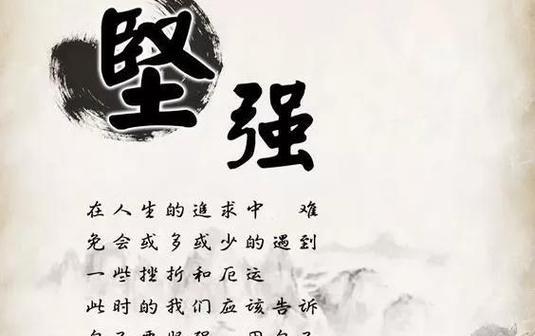 堅强
在人生的追求中 难
免会或多或少的遇到
一些挫折和厄运
此时的我们应该告诉
自己要坚强 用自己